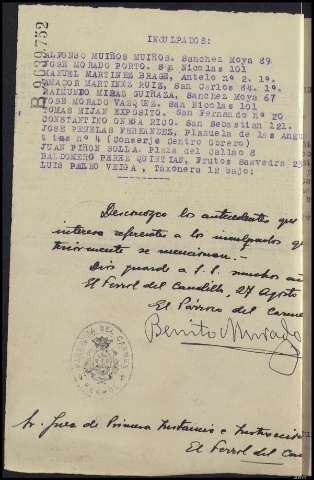 B 9639752
INCULPADOS:
ALFONSO MUIÑOS MUIÑOS. Sanchez Moya 69
JOSE MORADO PORTO. San Nicolas 101
MANUEL MARTINEZ BRAGE, Antelo nº 2. 1º.
AMADOR MARTINEZ RUIZ, San Carlos 64. 1º.
RAIMUNDO MIRAS GUIRAZA, Sanchez Moya 67
JOSE MORADO VAZQUEZ. San Nicolas 101
TOMAS HIJAN EXPOSITO. San Fernando nº 20
CONSTANTINO ONEGA RICO. San Sebastian 121.
JOSE PENELAS FERNANDEZ, Plazuela de las Angus
tias nº 4 (Conserje Centro Obrero)
JUAN PIÑON SOLLA. Plaza del Callao 8
BALDOMERO PEREZ QUINTIAN, Frutos Saavedra
LUIS PALEO VEIGA, Taxonera 12 bajo:
Desconozco los antecedentes que
interesa referente a los inculpados q
teriormente se mencionan.-
Dios guarde a S.S. muchos añ
El Ferrol del Caudillo, 27 Agosto
El Párroco del Carmen
Benito Morado
PARROQUIA DEL CARMEN
FERROL
Sr. Juez de Primera Instancia e Instrucción
El Ferrol del Cau